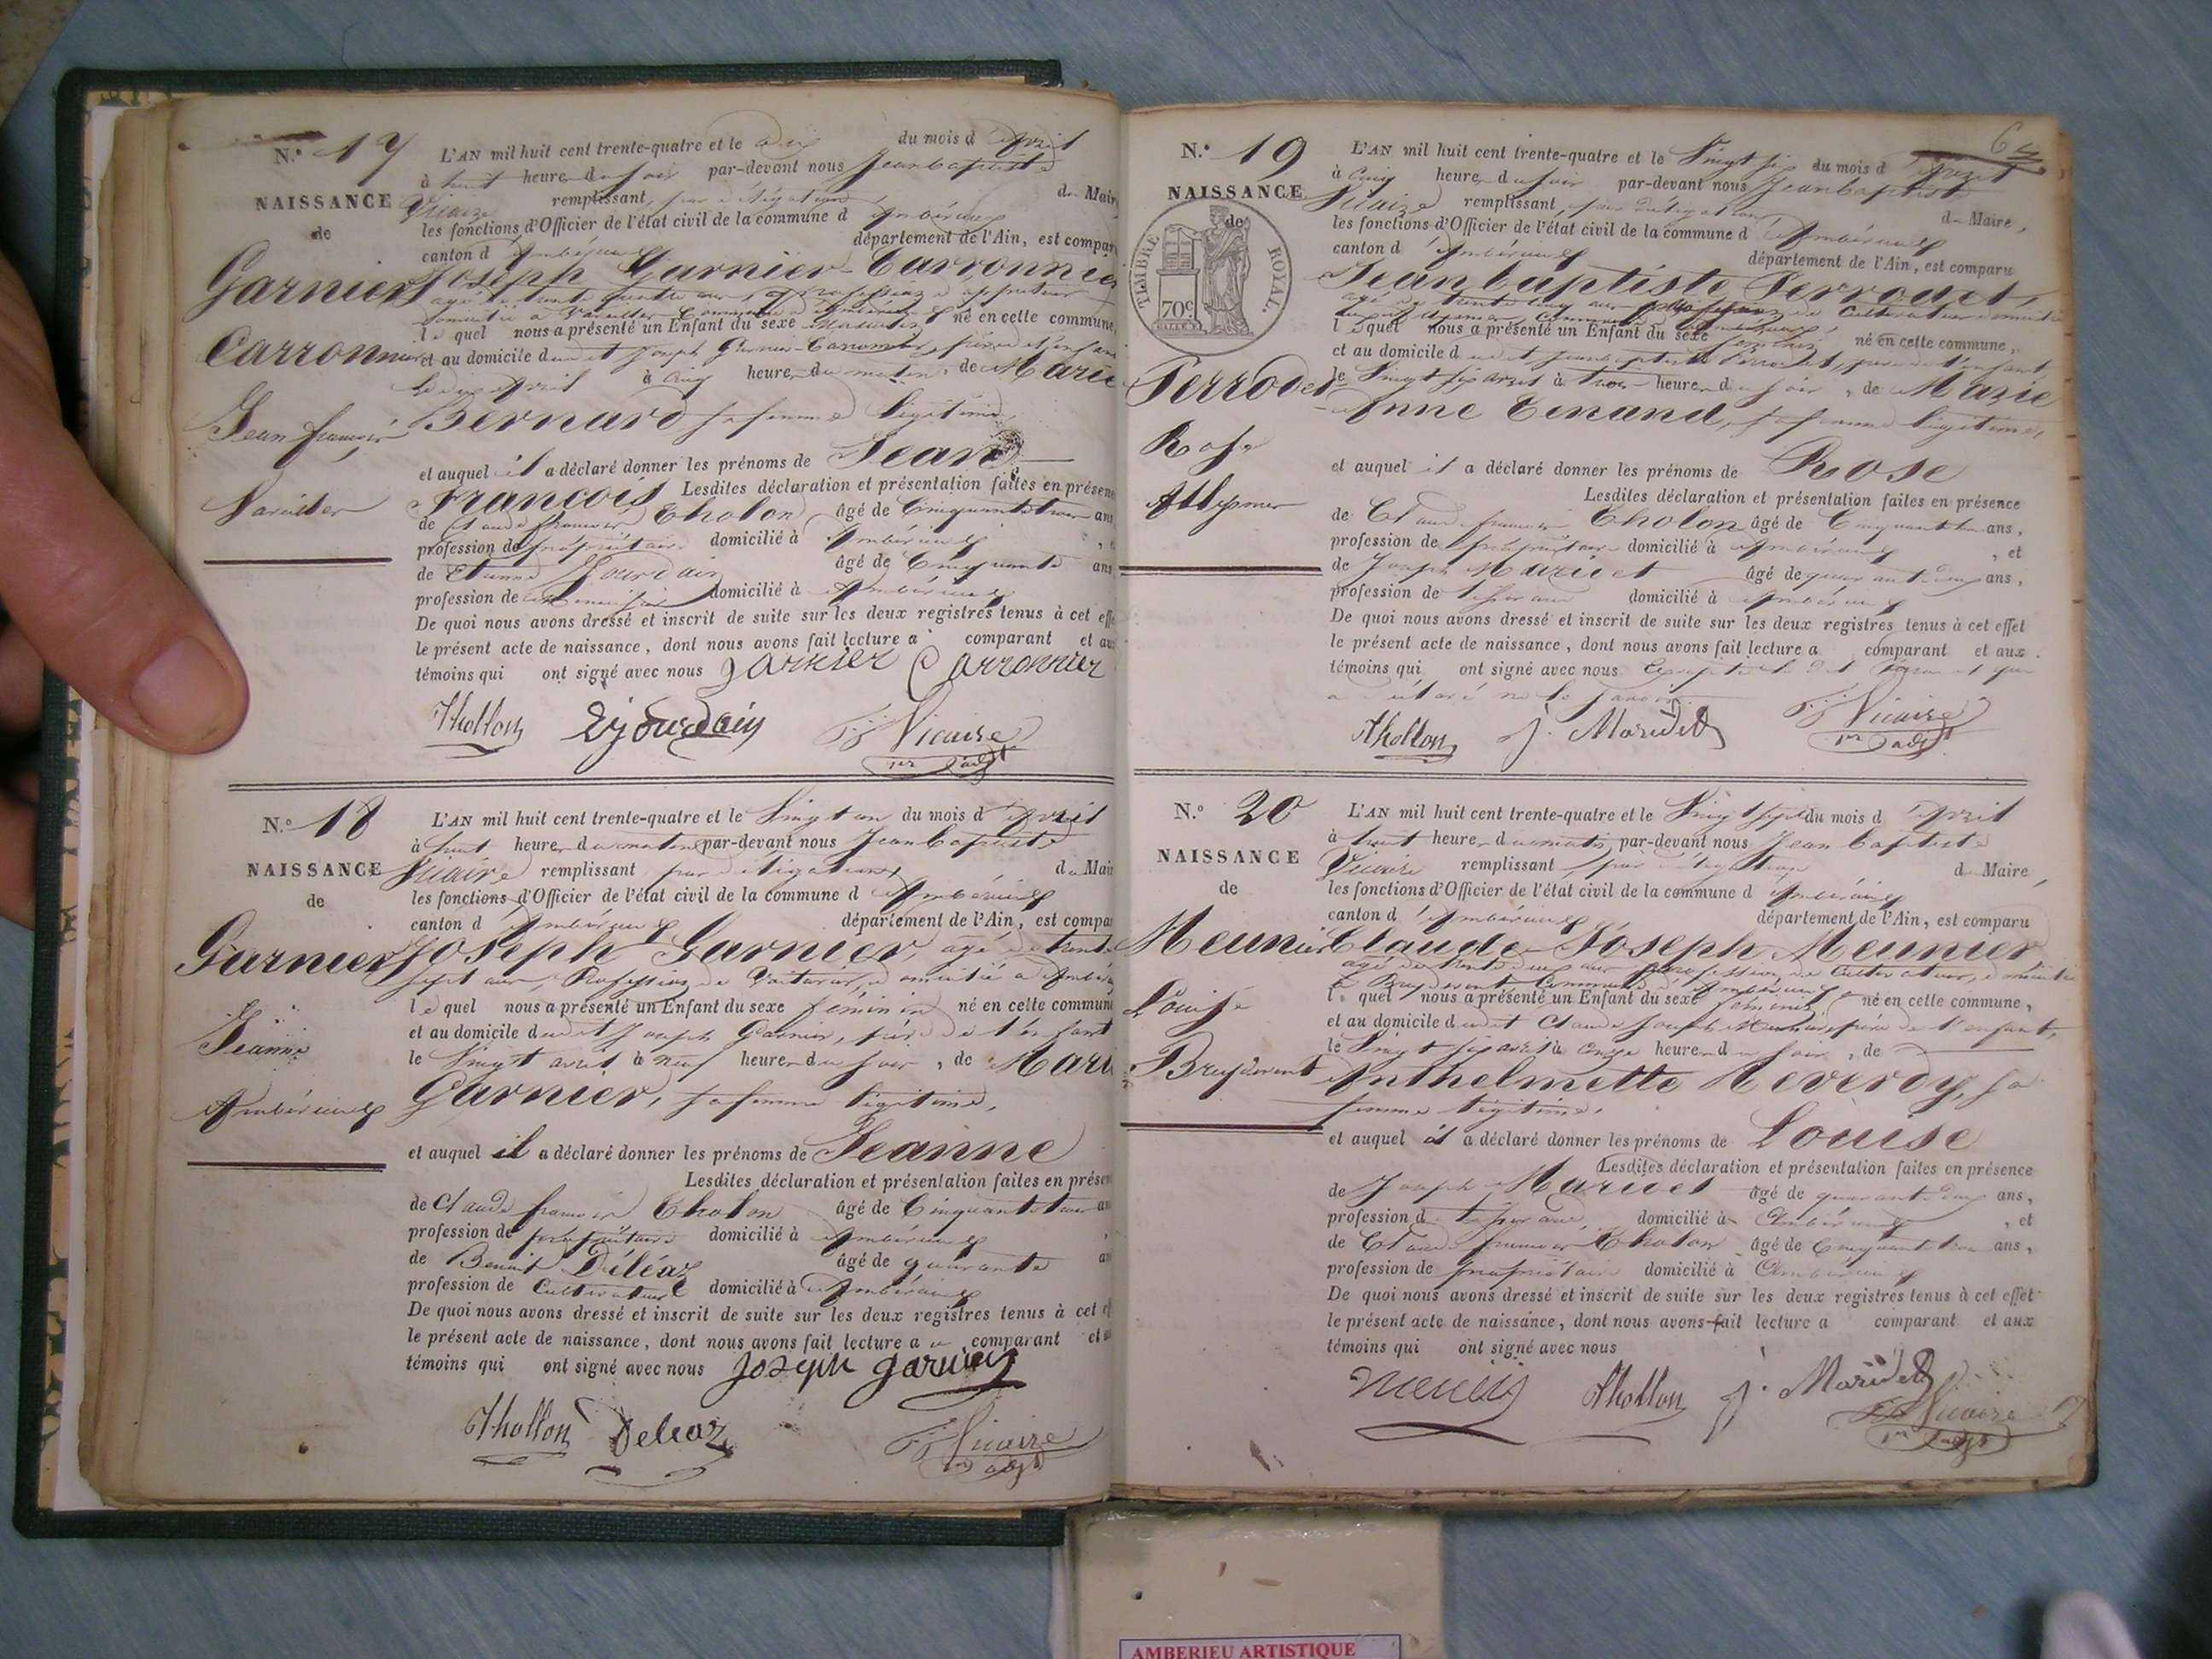 N.° 17
NAISSANCE
de
Garnier
Carronnier
Jean françois
Vareilles
L'AN mil huit cent trente-quatre et le dix du mois d'avril
à huit heures du soir par-devant nous Jean baptiste
Vicaire remplissant, par délégation du Maire
les fonctions d'Officier de l'état civil de la commune d'Ambérieux
canton d'Ambérieux département de l'Ain, est comparu
Joseph Garnier-Carronnier
agé de trente ans, profession d
domicilié à Vareilles Commune d'Ambérieux
lequel nous a présenté un Enfant du sexe masculin, né en cette commune,
et au domicile dudit Joseph Garnier-Carronnier, père de l'enfant
le dix avril à cinq heures du matin, de Marie
Bernard sa femme légitime,
et auquel il a déclaré donner les prénoms de Jean
François Lesdites déclaration et présentation faites en présence
de Claude françois Tholon âgé de Cinquante trois ans
profession de propriétaire domicilié à Ambérieux, et
de Etienne Jourdain âgé de Cinquante ans
profession de domicilié à Ambérieux
De quoi nous avons dressé et inscrit de suite sur les deux registres tenus à cet effet
le présent acte de naissance, dont nous avons fait lecture a comparant et aux
témoins qui ont signé avec nous garnier Carronnier
Thollon Ejourdain JB Vicaire
1er adjt
N.° 18
NAISSANCE
de
Garnier
Jeanne
Ambérieux
L'AN mil huit cent trente-quatre et le Vingt un du mois d'avril
à huit heures du matin par-devant nous Jean baptiste
Vicaire remplissant par délégation du Maire
les fonctions d'Officier de l'état civil de la commune d'Ambérieux
canton d'Ambérieux département de l'Ain, est comparu
Joseph Garnier, agé de trente
sept ans, Profession de Voiturier, domicilié à Ambérieux
lequel nous a présenté un Enfant du sexe féminin né en cette commune
et au domicile dudit Joseph Garnier, père de l'enfant
le Vingt avril à neuf heures du soir, de Marie
Garnier, sa femme légitime,
et auquel il a déclaré donner les prénoms de Jeanne
Lesdites déclaration et présentation faites en présence
de Claude françois Tholon âgé de Cinquante trois ans
profession de propriétaire domicilié à Ambérieux,
de Benoit Déléaz âgé de quarante ans
profession de Cultivateur domicilié à Ambérieux
De quoi nous avons dressé et inscrit de suite sur les deux registres tenus à cet effet
le présent acte de naissance, dont nous avons fait lecture au comparant et aux
témoins qui ont signé avec nous Joseph garnier
Thollon Deleaz JB Vicaire
1er adjt
64
N.° 19
NAISSANCE
de
TIMBRE ROYAL.
70c
Ferrodet
Rose
Attignier
L'AN mil huit cent trente-quatre et le Vingt six du mois d'avril
à cinq heures du soir par-devant nous Jean baptiste
Vicaire remplissant, par délégation du Maire,
les fonctions d'Officier de l'état civil de la commune d'Ambérieux
canton d'Ambérieux département de l'Ain, est comparu
Jean baptiste Ferrodet,
agé de trente cinq ans profession de Cultivateur domicilié
Commune d'Ambérieux,
lequel nous a présenté un Enfant du sexe féminin né en cette commune,
et au domicile dudit Jean baptiste Ferrodet, père de l'enfant,
le Vingt six avril à trois heures du soir, de Marie
Anne Tenand, sa femme légitime,
et auquel il a déclaré donner les prénoms de Rose
Lesdites déclaration et présentation faites en présence
de Claude françois Tholon âgé de Cinquante trois ans,
profession de propriétaire domicilié à Ambérieux, et
de Joseph Marivet âgé de quarante deux ans,
profession de domicilié à Ambérieux
De quoi nous avons dressé et inscrit de suite sur les deux registres tenus à cet effet
le présent acte de naissance, dont nous avons fait lecture a comparant et aux
témoins qui ont signé avec nous Excepté ledit qui
a déclaré ne le savoir
Thollon J. Marivet JB Vicaire
1er adjt
N.° 20
NAISSANCE
de
Meunier
Louise
Breydevent
L'AN mil huit cent trente-quatre et le Vingt sept du mois d'avril
à huit heures du matin par-devant nous Jean baptiste
Vicaire remplissant, par délégation du Maire,
les fonctions d'Officier de l'état civil de la commune d'Ambérieux
canton d'Ambérieux département de l'Ain, est comparu
Claude Joseph Meunier
agé de trente deux ans profession de Cultivateur, domicilié
à Breydevent Commune d'Ambérieux
lequel nous a présenté un Enfant du sexe féminin né en cette commune,
et au domicile dudit Claude Joseph Meunier père de l'enfant,
le Vingt six avril à onze heures du soir, de
Anthelmette Reverdy, sa
femme légitime,
et auquel il a déclaré donner les prénoms de Louise
Lesdites déclaration et présentation faites en présence
de Joseph Marivet âgé de quarante deux ans,
profession d domicilié à Ambérieux, et
de Claude françois Tholon âgé de Cinquante trois ans,
profession de propriétaire domicilié à Ambérieux
De quoi nous avons dressé et inscrit de suite sur les deux registres tenus à cet effet
le présent acte de naissance, dont nous avons fait lecture a comparant et aux
témoins qui ont signé avec nous
Thollon J. Marivet
JB Vicaire
1er adjt
AMBERIEU ARTISTIQUE